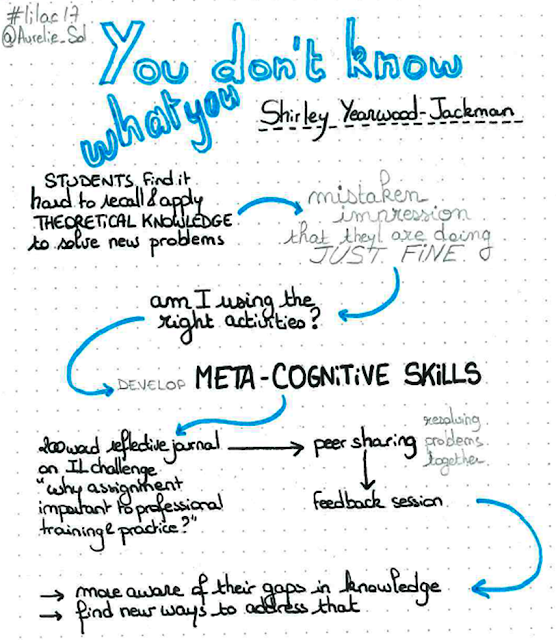 #lilac17
@Aurelie_Sol
You don't know
what you
Shirley Yearwood-Jackman
STUDENTS find it
hard to recall & apply
THEORETICAL KNOWLEDGE
to solve new problems
mistaken
impression
that they are doing
JUST FINE
am I using the
right activities?
DEVELOP META-COGNITIVE SKILLS
200 word reflective journal
on IL challenge
"why assignment
important to professional
training & practice?"
peer sharing
resolving
problems
together
feedback session
→ more aware of their gaps in knowledge
→ find new ways to address that